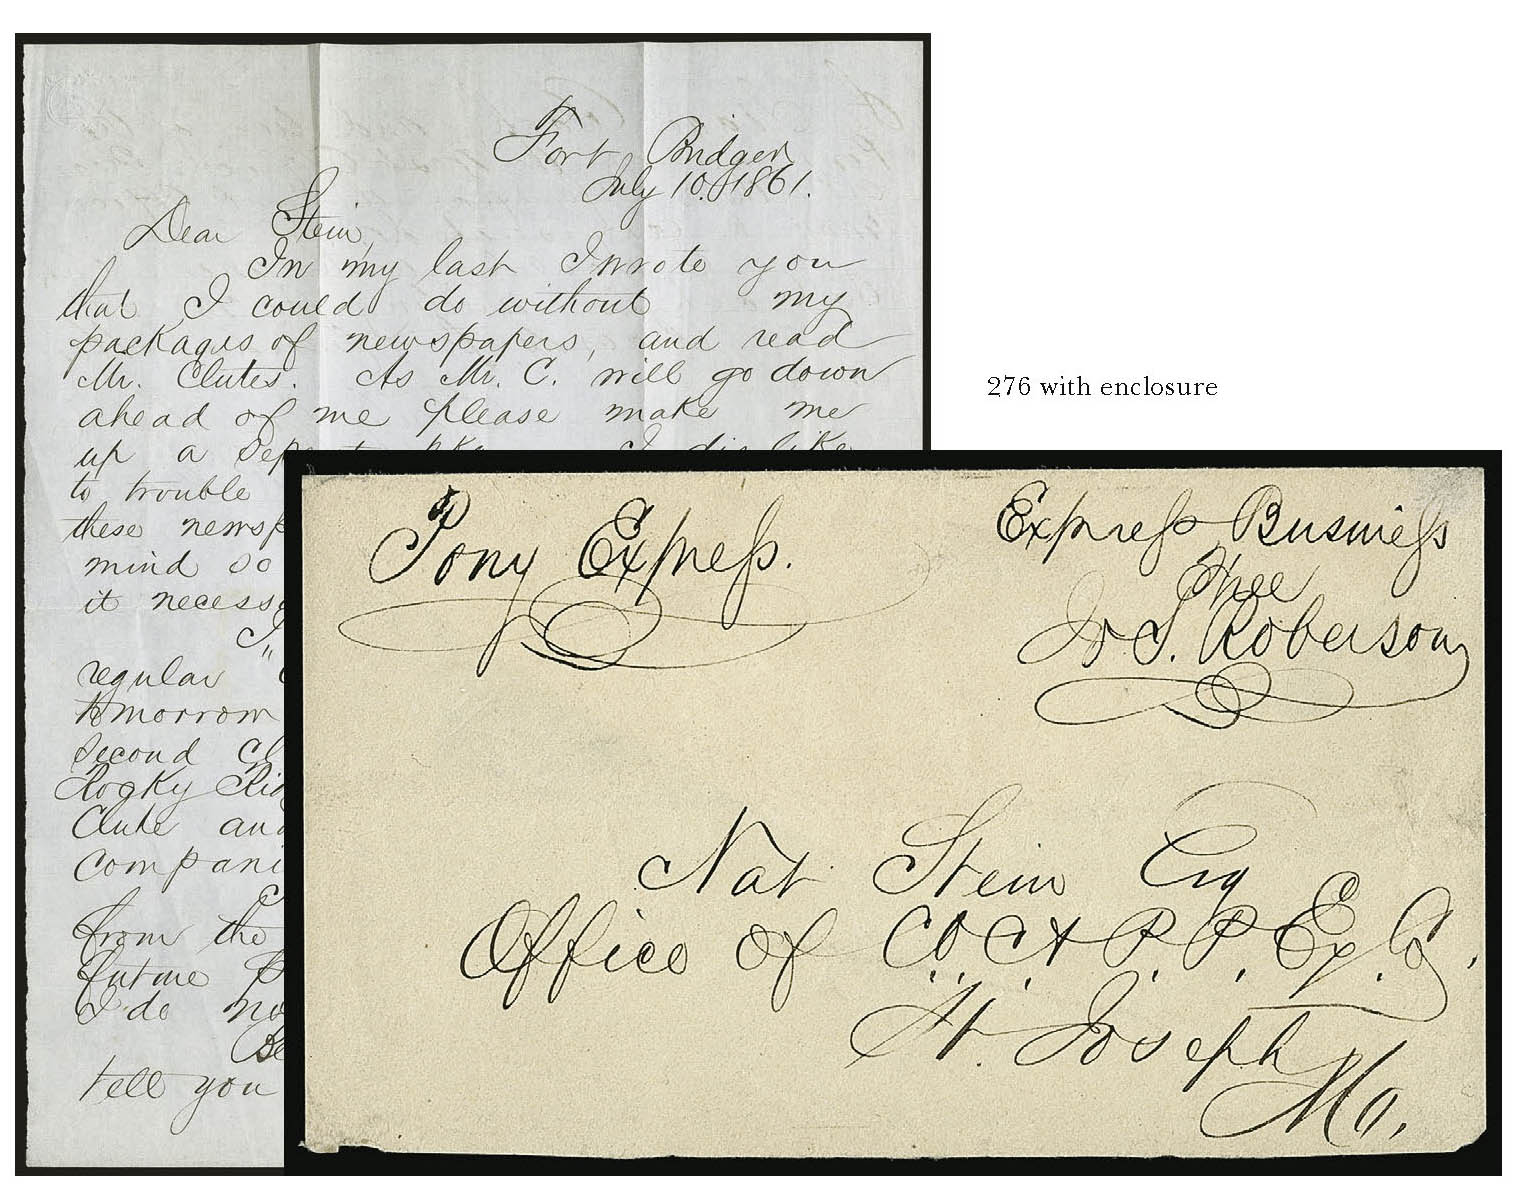 Fort Bridger
July 10. 1861.
Dear Stein,
In my last I wrote you
that I could do without my
packages of newspapers, and read
Mr. Clutes. As Mr. C. will go down
ahead of me please make me
up a I dislike
to trouble
these newsp
mind so
it necess
regular "
tomorrow
second
Rocky Rid
Clute and
compani
from the
future
I do no
Be
tell you
276 with enclosure
Pony Express.
Express Business
Free
Jo S. Roberson
Nat Stein Esq
Office of C.O.C. & P. P. Ex. Co.
St. Joseph
Mo.